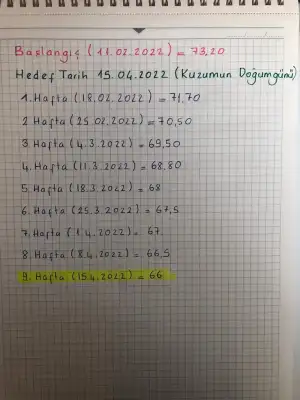 Başlangıç (11.02.2022) = 73,20
Hedef Tarih 15.04.2022 (Kuzumun Doğumgünü)
1. Hafta (18.02.2022) = 71,70
2 Hafta (25.02.2022) = 70,50
3 Hafta (4.3.2022) = 69,50
4. Hafta (11.3.2022) = 68,80
5. Hafta (18.3.2022) = 68
6. Hafta (25.3.2022) = 67,5
7. Hafta (1.4.2022) = 67
8. Hafta (8.4.2022) = 66,5
9. Hafta (15.4.2022) = 66